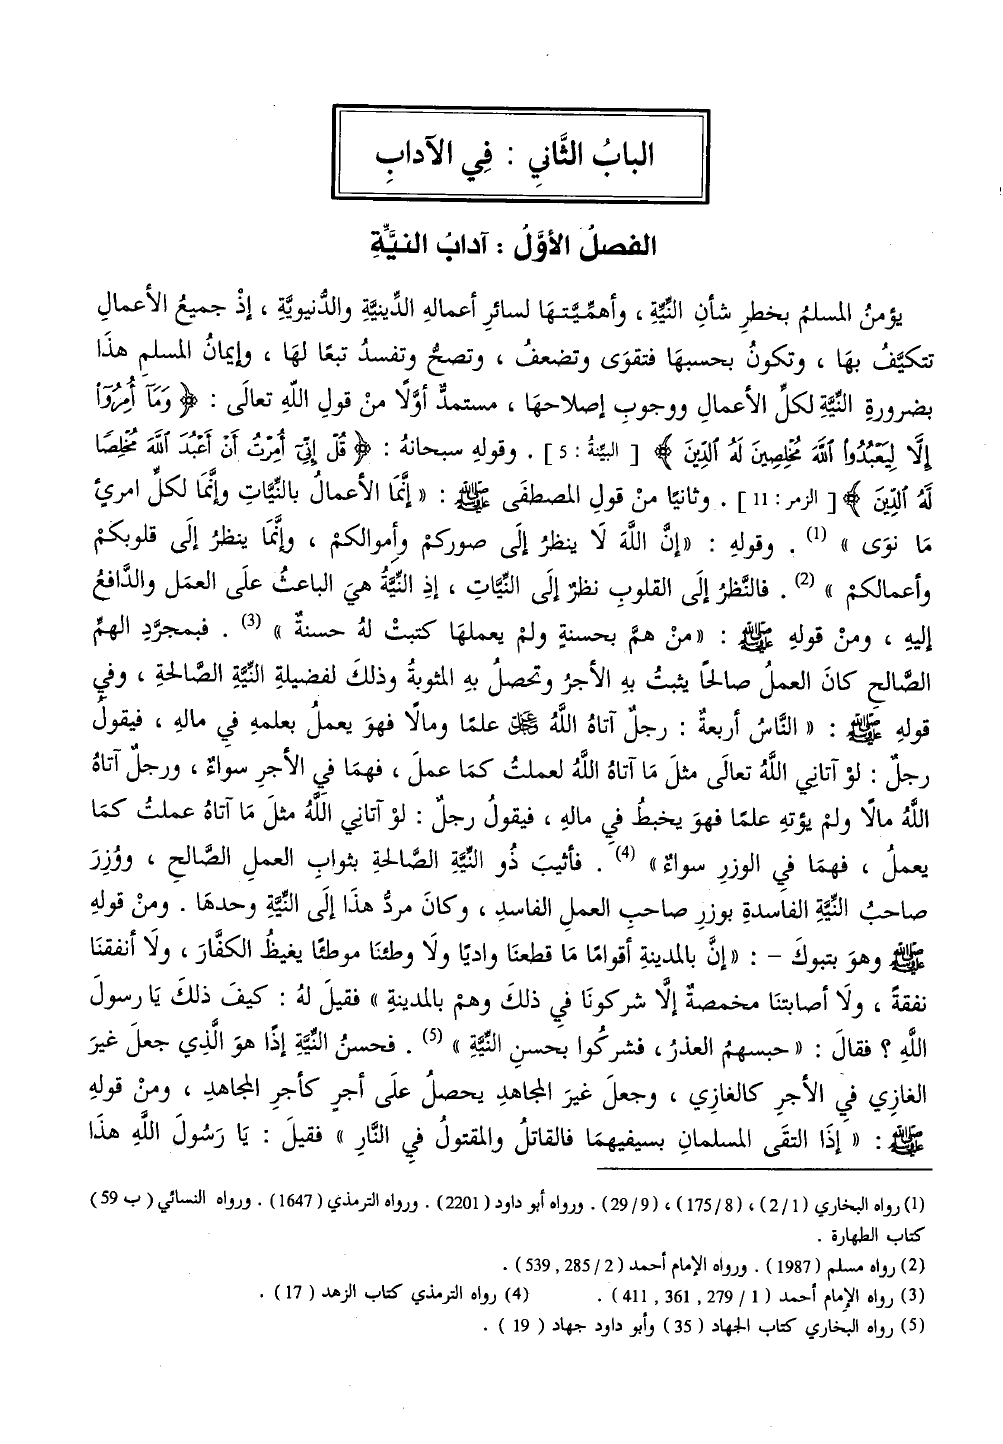 البابُ الثَّانِي : فِي الآدابِ
الفصلُ الأوَّلُ : آدابُ النيَّةِ
يؤمنُ المسلمُ بخطرِ شأنِ النِّيَّةِ ، وأهمِّيَّتهَا لسائرِ أعمالهِ الدِّينيَّةِ والدُّنيويَّةِ ، إذْ جميعُ الأعمالِ
تتكيَّفُ بهَا ، وتكونُ بحسبهَا فتقوَى وتضعفُ ، وتصحُّ وتفسدُ تبعًا لهَا ، وإيمانُ المسلمِ هذَا
بضرورةِ النِّيَّةِ لكلِّ الأعمالِ ووجوبِ إصلاحهَا ، مستمدٌّ أوَّلًا منْ قولِ اللهِ تعالَى : ﴿ وَمَآ أُمِرُوٓاْ
إِلَّا لِيَعْبُدُواْ ٱللَّهَ مُخْلِصِينَ لَهُ ٱلدِّينَ ﴾ [ البيِّنةُ : 5 ] . وقولهِ سبحانهُ : ﴿ قُلْ إِنِّيٓ أُمِرْتُ أَنْ أَعْبُدَ ٱللَّهَ مُخْلِصًا
لَّهُ ٱلدِّينَ ﴾ [ الزمر : 11 ] . وثانيًا منْ قولِ المصطفَى ﷺ : « إنَّمَا الأعمالُ بالنِّيَّاتِ وإنَّمَا لكلِّ امرئٍ
مَا نوَى » (1) . وقولهِ : «إنَّ اللَّهَ لَا ينظرُ إلَى صوركمْ وأموالكمْ ، وإنَّمَا ينظرُ إلَى قلوبكمْ
وأعمالكمْ » (2) . فالنَّظرُ إلَى القلوبِ نظرٌ إلَى النِّيَّاتِ ، إذِ النِّيَّةُ هيَ الباعثُ علَى العمَلِ والدَّافعُ
إليهِ ، ومنْ قولهِ ﷺ : «منْ همَّ بحسنةٍ ولمْ يعملهَا كتبتْ لهُ حسنةٌ » (3) . فبمجرَّدِ الهمِّ
الصَّالحِ كانَ العملُ صالحًا يثبتُ بهِ الأجرُ وتحصلُ بهِ المثوبةُ وذلكَ لفضيلةِ النِّيَّةِ الصَّالحةِ ، وفِي
قولهِ ﷺ : « النَّاسُ أربعةٌ : رجلٌ آتاهُ اللَّهُ ﷻ علمًا ومالًا فهوَ يعملُ بعلمهِ فِي مالهِ ، فيقولُ
رجلٌ : لوْ آتانِي اللَّهُ تعالَى مثلَ مَا آتاهُ اللَّهُ لعملتُ كمَا عملَ ، فهمَا فِي الأجرِ سواءٌ ، ورجلٌ آتاهُ
اللَّهُ مالًا ولمْ يؤتهِ علمًا فهوَ يخبطُ في مالهِ ، فيقولُ رجلٌ : لوْ آتانِي اللَّهُ مثلَ مَا آتاهُ عملتُ كمَا
يعملُ ، فهمَا فِي الوزرِ سواءٌ» (4) . فأثيبَ ذُو النِّيَّةِ الصَّالحةِ بثوابِ العملِ الصَّالحِ ، ووُزِرَ
صاحبُ النِّيَّةِ الفاسدةِ بوزرِ صاحبِ العملِ الفاسدِ ، وكانَ مردُّ هذَا إلَى النِّيَّةِ وحدهَا . ومنْ قولهِ
ﷺ وهوَ بتبوكَ - : «إنَّ بالمدينةِ أقوامًا مَا قطعنَا واديًا ولَا وطئنَا موطئًا يغيظُ الكفَّارَ ، ولَا أنفقنَا
نفقةً ، ولَا أصابتنَا مخمصةٌ إلَّا شركونَا فِي ذلكَ وهمْ بالمدينةِ » فقيلَ لهُ : كيفَ ذلكَ يَا رسولَ
اللَّهِ ؟ فقالَ : « حبسهمُ العذرُ ، فشركُوا بحسنِ النِّيَّةِ » (5) . فحسنُ النِّيَّةِ إذًا هوَ الَّذِي جعلَ غيرَ
الغازِي فِي الأجرِ كالغازِي ، وجعلَ غيرَ المجاهدِ يحصلُ علَى أجرٍ كأجرِ المجاهدِ ، ومنْ قولهِ
ﷺ : « إذَا التقَى المسلمانِ بسيفيهمَا فالقاتلُ والمقتولُ فِي النَّارِ » فقيلَ : يَا رَسُولَ اللَّهِ هذَا
(1) رواه البخاري (2/1) ، (175/8) ، (29/9) . ورواه أبو داود (2201) . ورواه الترمذي (1647) . ورواه النسائي ( ب 59)
كتاب الطهارة .
(2) رواه مسلم (1987) . ورواه الإمام أحمد (2/ 285 , 539) .
(3) رواه الإمام أحمد ( 1 / 279 , 361 , 411) . (4) رواه الترمذي كتاب الزهد ( 17 ) .
(5) رواه البخاري كتاب الجهاد ( 35 ) وأبو داود جهاد ( 19 ) .